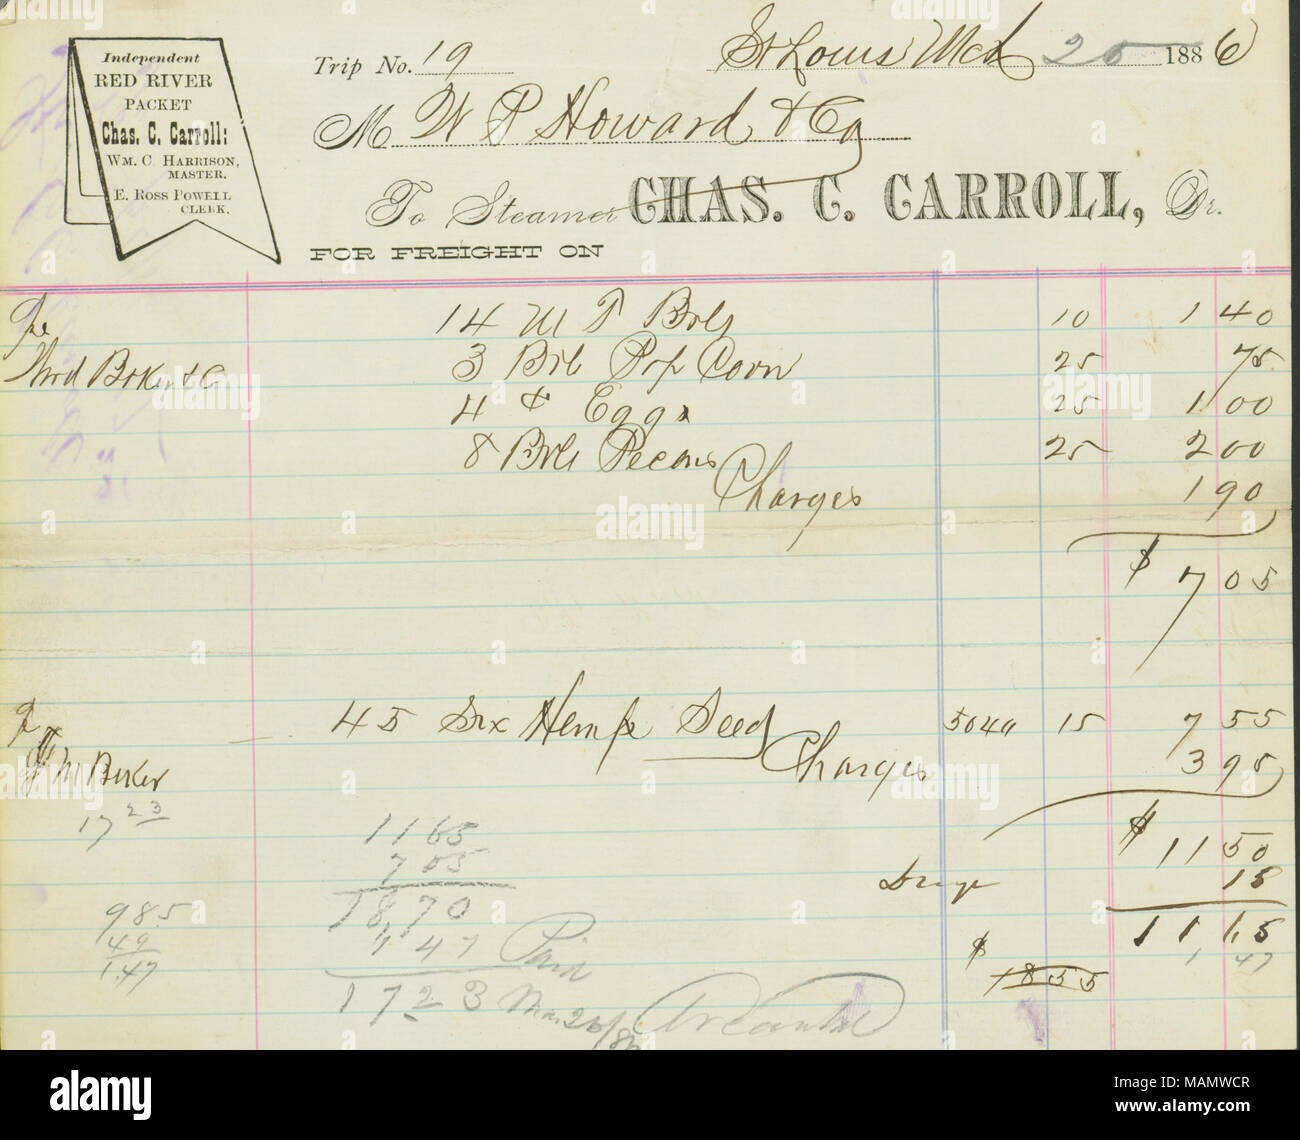 Independent
RED RIVER
PACKET
Chas. C. Carroll:
WM. C HARRISON,
MASTER.
E. ROSS POWELL
CLERK.
Trip No. 19 St Louis Mch 25 1886
M W P Howard & Co
To Steamer CHAS. C. CARROLL, Dr.
FOR FREIGHT ON
14 M T Brls 10 1 40
3 Brl Pop Corn 25 75
4 " Eggs 25 1 00
8 Brls Pecans 25 2 00
Charges 1 90
$ 7 05
45 Sax Hemp Seed 5040 15 7 55
Charges 3 95
M Baker
17 23
$ 11 50
15
11 65
1 47
$ 18 55
11 65
7 05
18,70
1 47 Paid
17 23 Mar 26/86
985
49
1.47
alamy
Image ID: MAMWCR
www.alamy.com